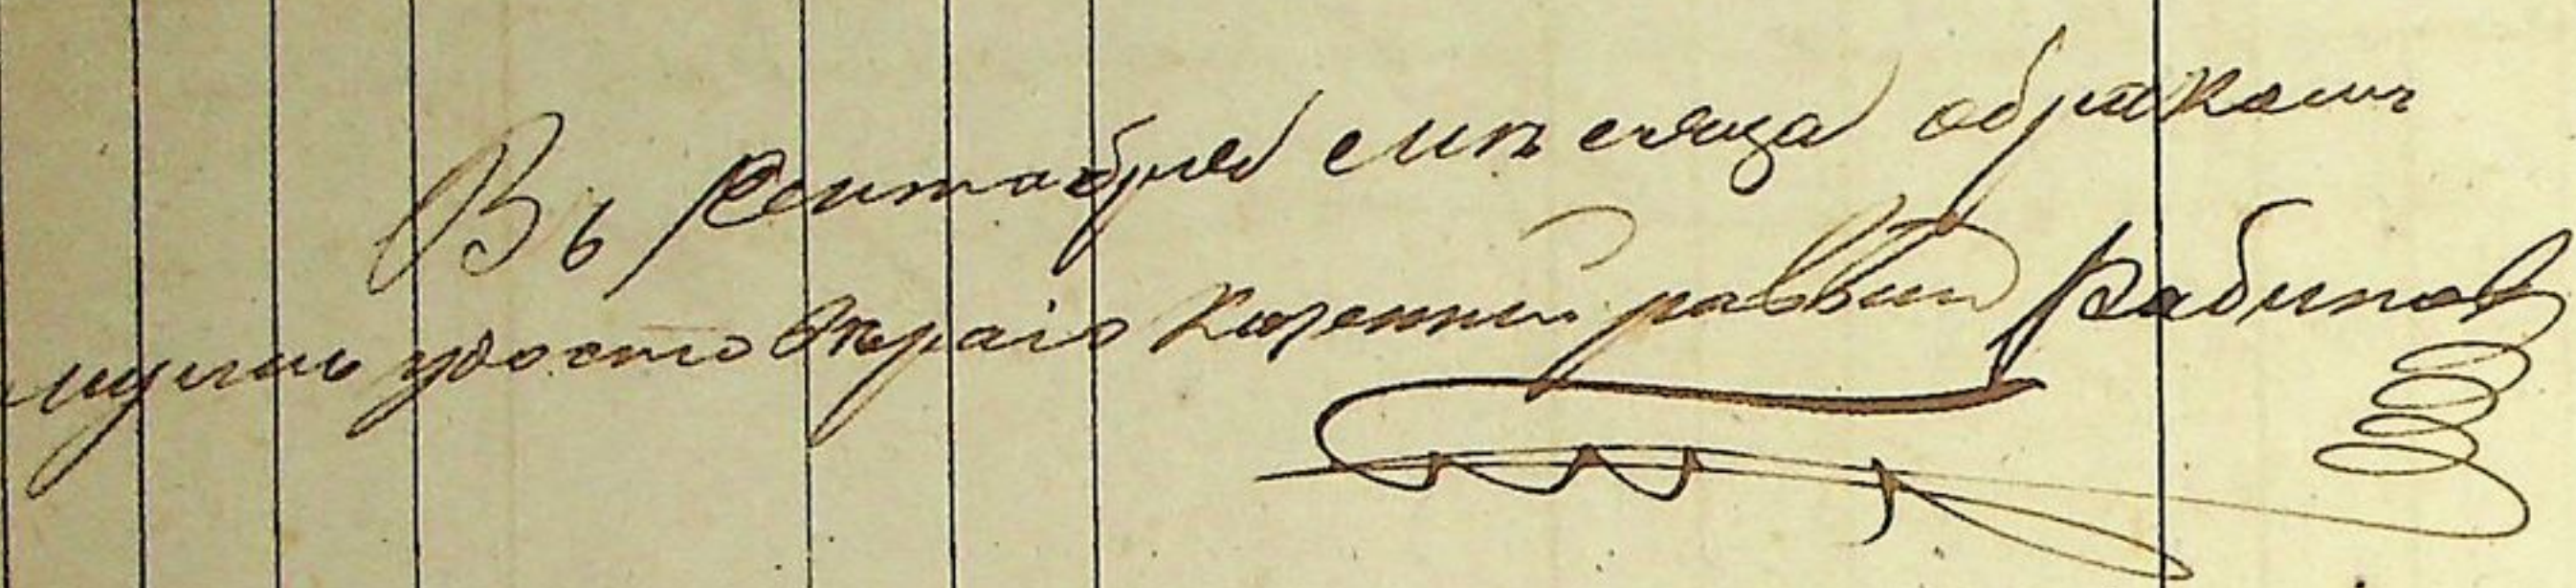 Въ Сентабрѣ емѣсяца обрѣзаныхъ
мущинъ удостовѣраіо Казенный раввинъ Рабинов